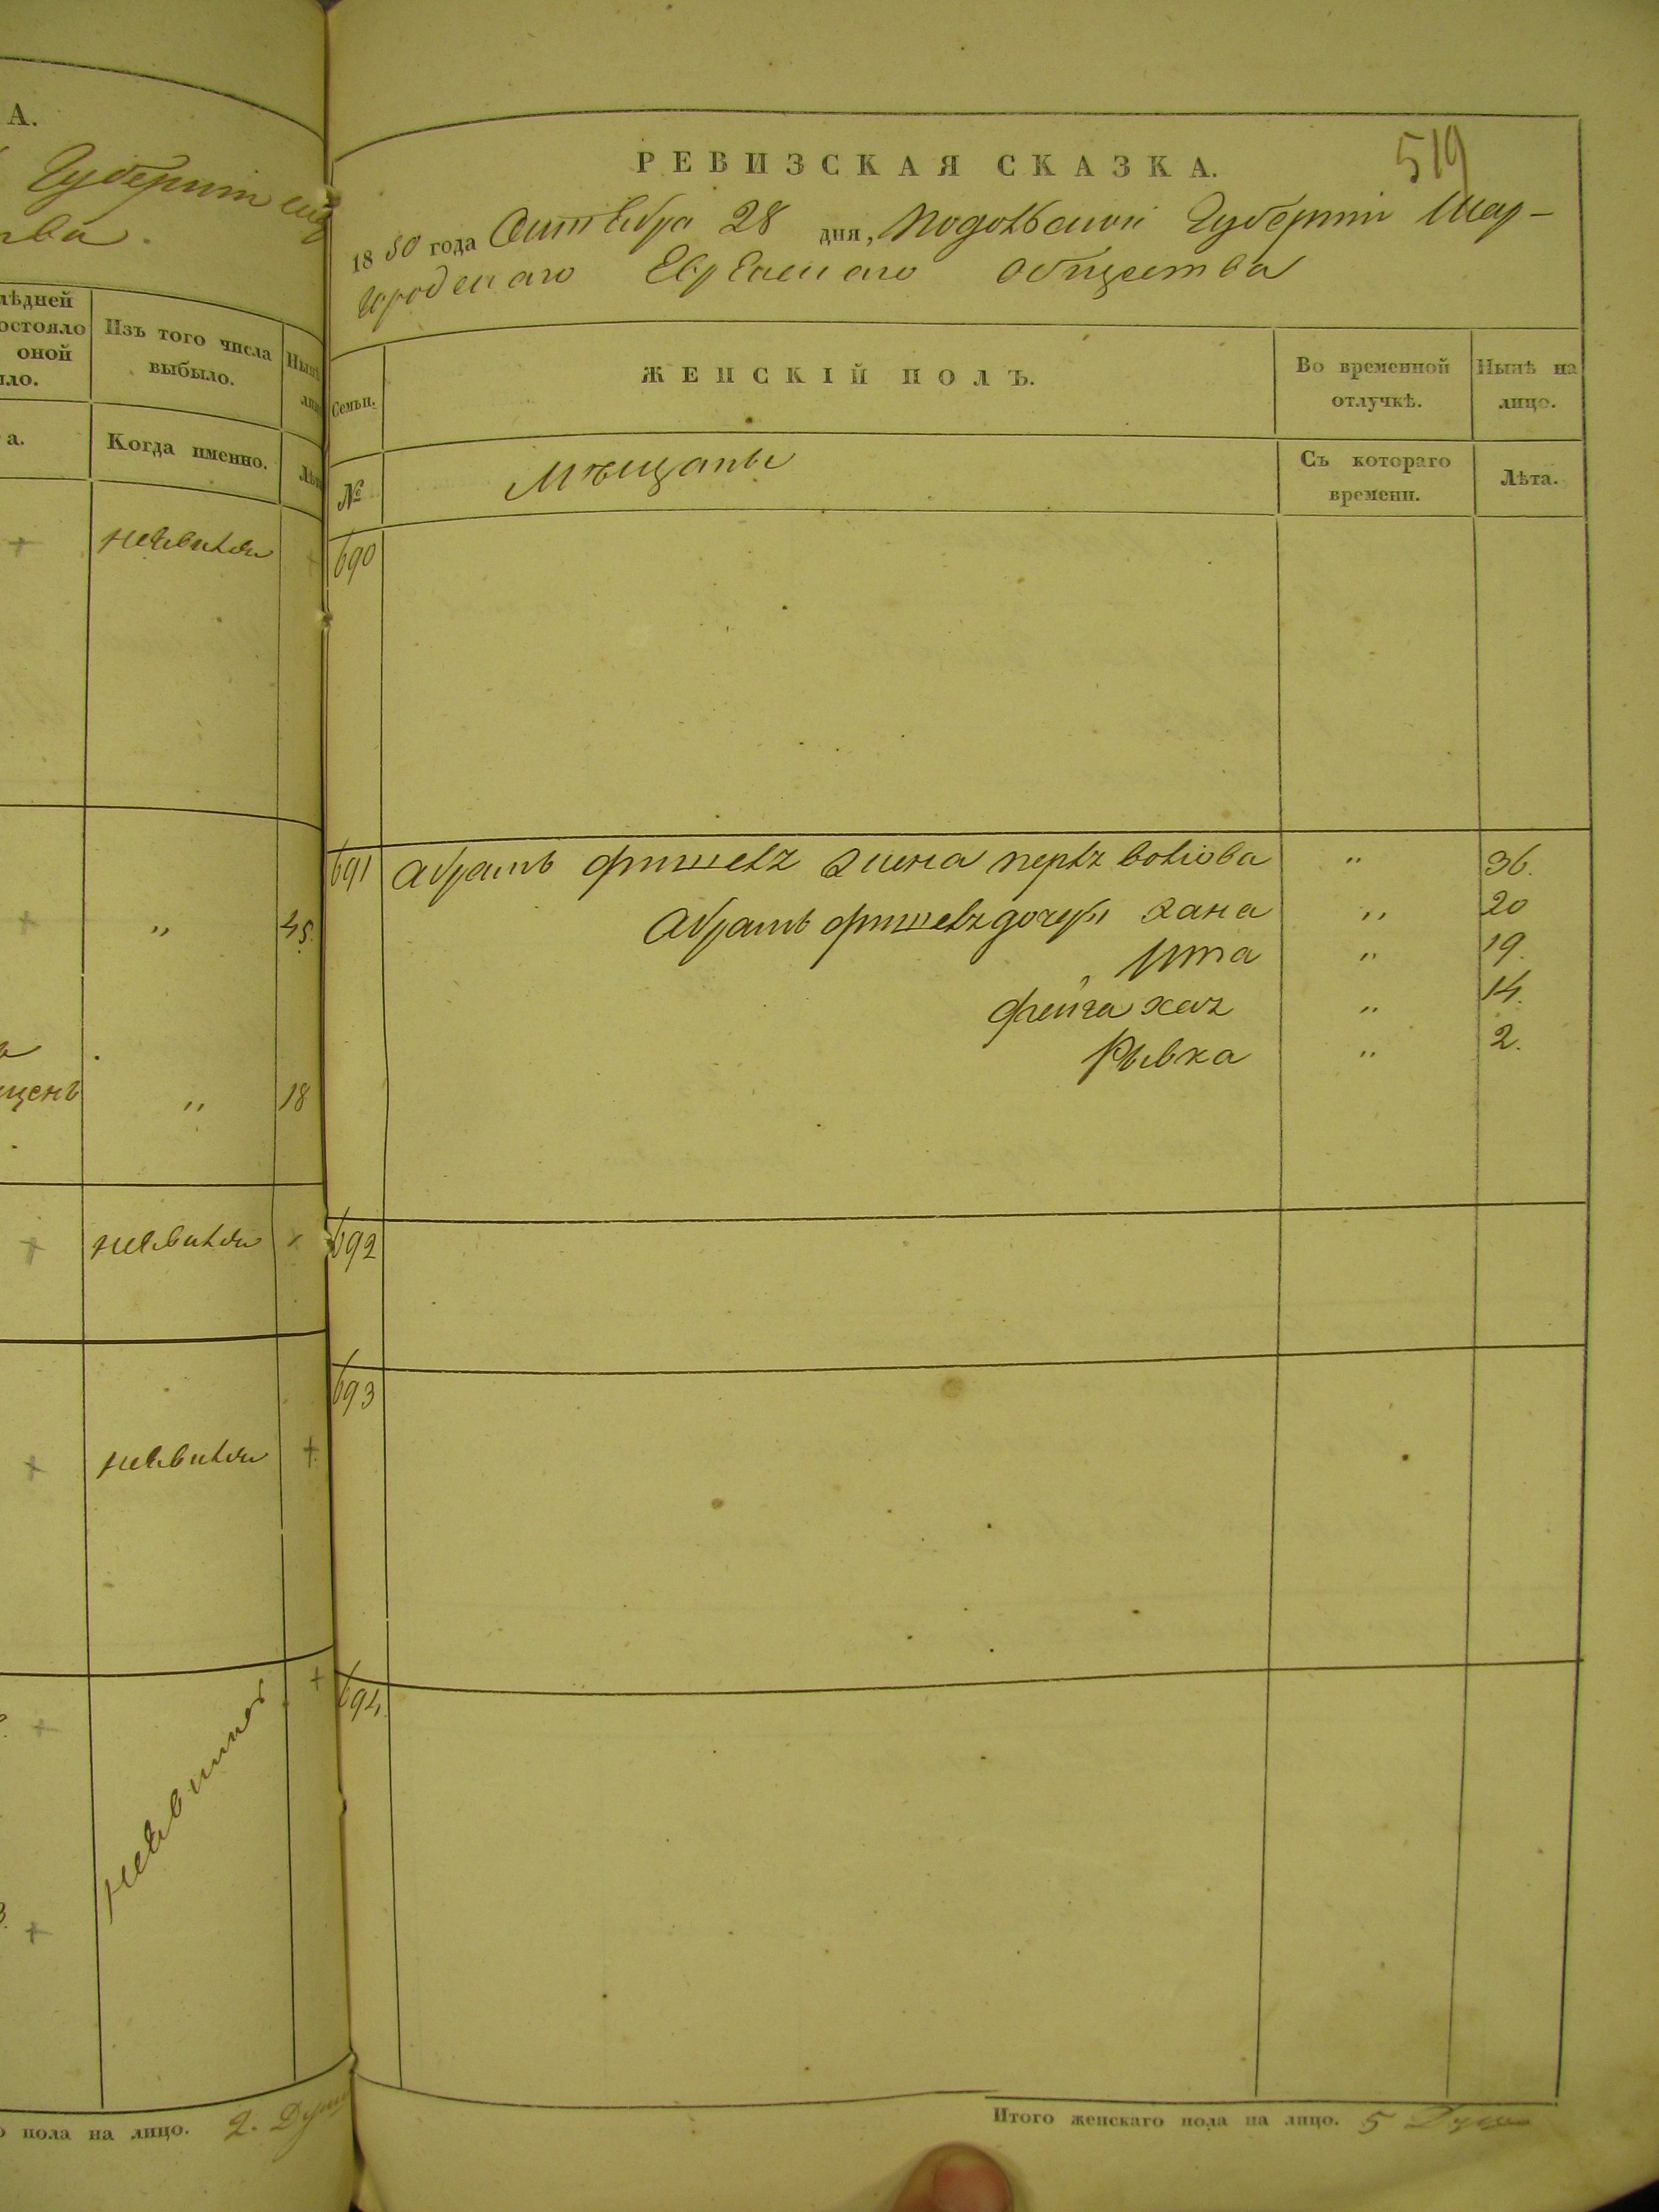 А.
Губерніи
тва.
лѣдней
остояло
оной
ыло.
Изъ того числа
выбыло.
а.
Когда именно.
неявился
"
45.
щенъ
"
18
неявился
неявился
неявился
пола на лицо. 2. Души
519
РЕВИЗСКАЯ СКАЗКА.
1850 года Октября 28 дня, Подольской Губерніи Шар-
городскаго Еврейскаго общества
Семьи.
ЖЕНСКІЙ ПОЛЪ.
Во временной
отлучкѣ.
Нынѣ на
лицо.
№
Мѣщаны
Съ котораго
времени.
Лѣта.
690
691 Абрамъ фишеля жена перля волiова " 36.
Абрамъ фишеля дочери хана " 20
" Ита " 19.
фейга хая " 14.
Рывка " 2.
692
693
694.
Итого женскаго пола на лицо. 5 Душ